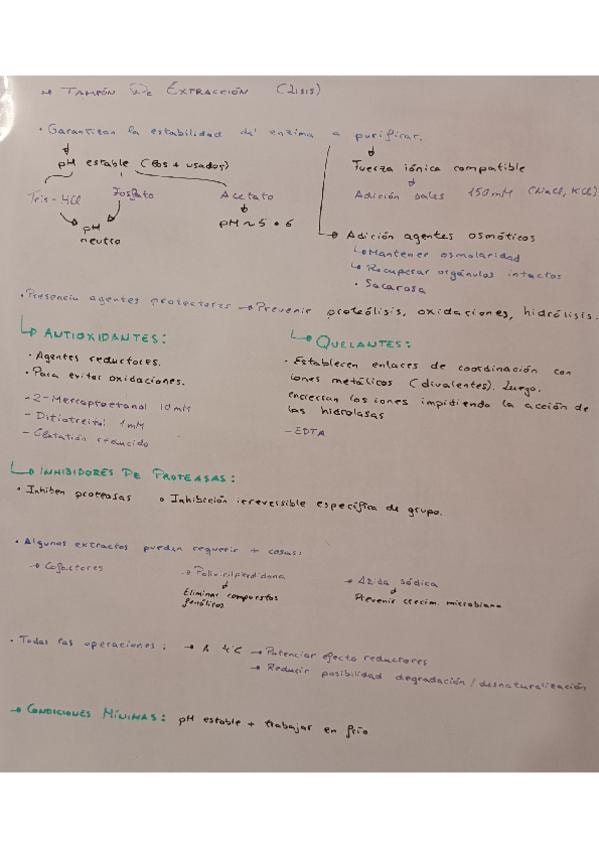 → TAMPÓN DE EXTRACCIÓN (LISIS)
• Garantizan la estabilidad de enzima a purificar.
pH estable (Los + usados)
Tris-HCl
Fosfato
Acetato
pH neutro
pH ~ 5 o 6
Fuerza iónica compatible
Adición sales 150 mM (NaCl, KCl)
→ Adición agentes osmóticos
↳ Mantener osmolaridad
↳ Recuperar orgánulos intactos
• Sacarosa
• Presencia agentes protectores → Prevenir proteólisis, oxidaciones, hidrólisis.
↳ ANTIOXIDANTES:
• Agentes reductores.
• Para evitar oxidaciones.
- 2-Mercaptoetanol 10 mM
- Ditiotreitol 1 mM
- Glutatión reducido
↳ QUELANTES:
• Establecen enlaces de coordinación con
iones metálicos (divalentes). Luego.
encierran los iones impidiendo la acción de
las hidrolasas
- EDTA
↳ INHIBIDORES DE PROTEASAS:
• Inhiben proteasas o Inhibición irreversible específica de grupo.
• Algunos extractos pueden requerir + cosas:
→ Cofactores
→ Polivinilpirrolidona
Eliminar compuestos
fenólicos
→ Azida sódica
Prevenir crecim. microbiano
• Todas las operaciones: → A 4°C → Potenciar efecto reductores
→ Reducir posibilidad degradación / desnaturalización
→ CONDICIONES MÍNIMAS: pH estable + trabajar en frío